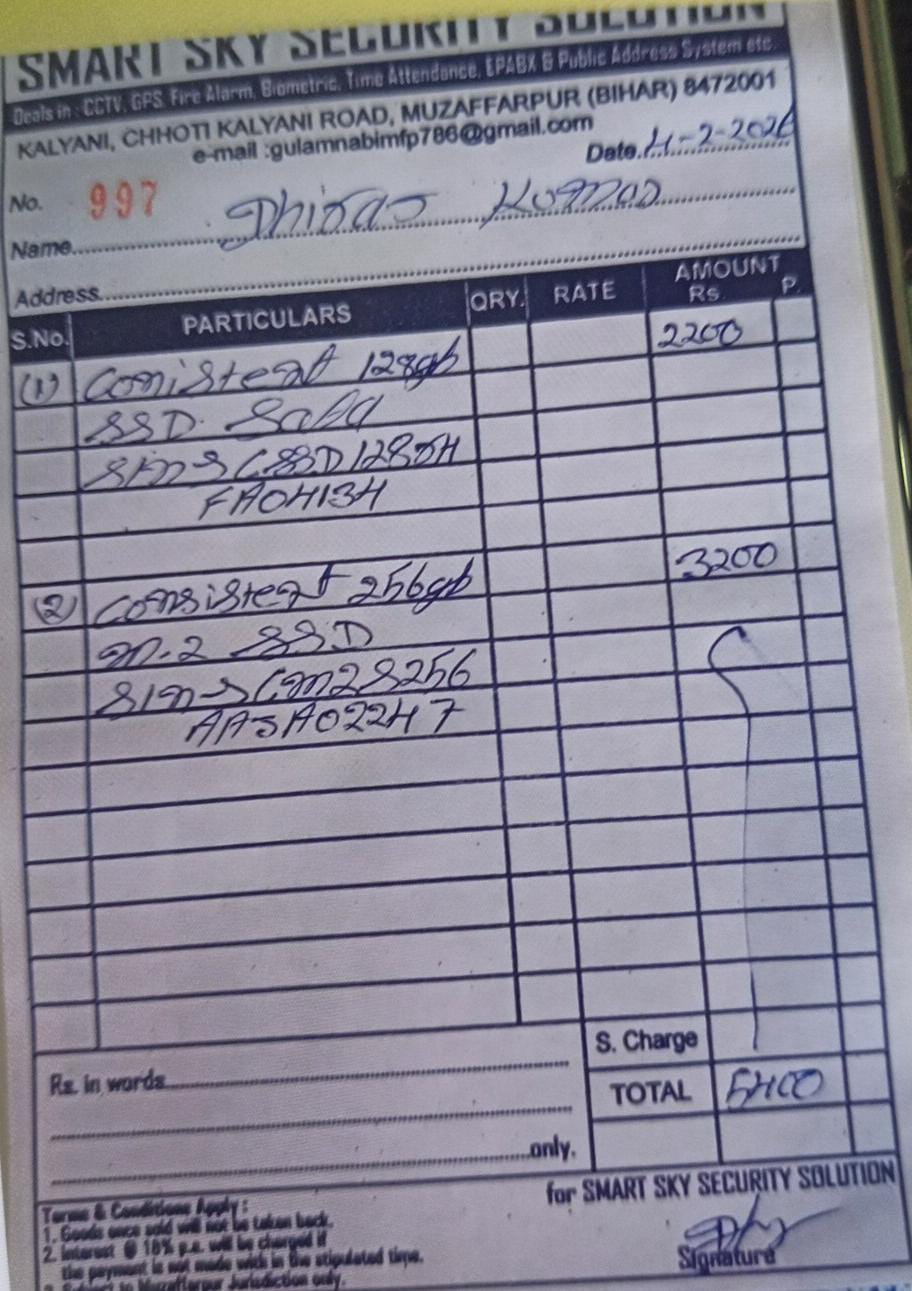 SMART SKY SECURITY SOLUTION
Deals in : CCTV, GPS, Fire Alarm, Biometric, Time Attendance, EPABX & Public Address System etc.
KALYANI, CHHOTI KALYANI ROAD, MUZAFFARPUR (BIHAR) 8472001
e-mail :gulamnabimfp786@gmail.com
Date. 4-2-2026
No. 997
Name Dhiraj Kumar
Address
S.No. PARTICULARS QRY. RATE AMOUNT Rs. P.
(1) Conistent 128gb 2200
SSD Sata
FA04134
(2) Consistent 256gb 3200
m.2 SSD
S. Charge
Rs. in words
TOTAL 5400
only.
for SMART SKY SECURITY SOLUTION
Terms & Conditions Apply :
1. Goods once sold will not be taken back.
2. Interest @ 18% p.a. will be charged if
the payment is not made with in the stipulated time.
Subject to Muzaffarpur Jurisdiction only.
Signature